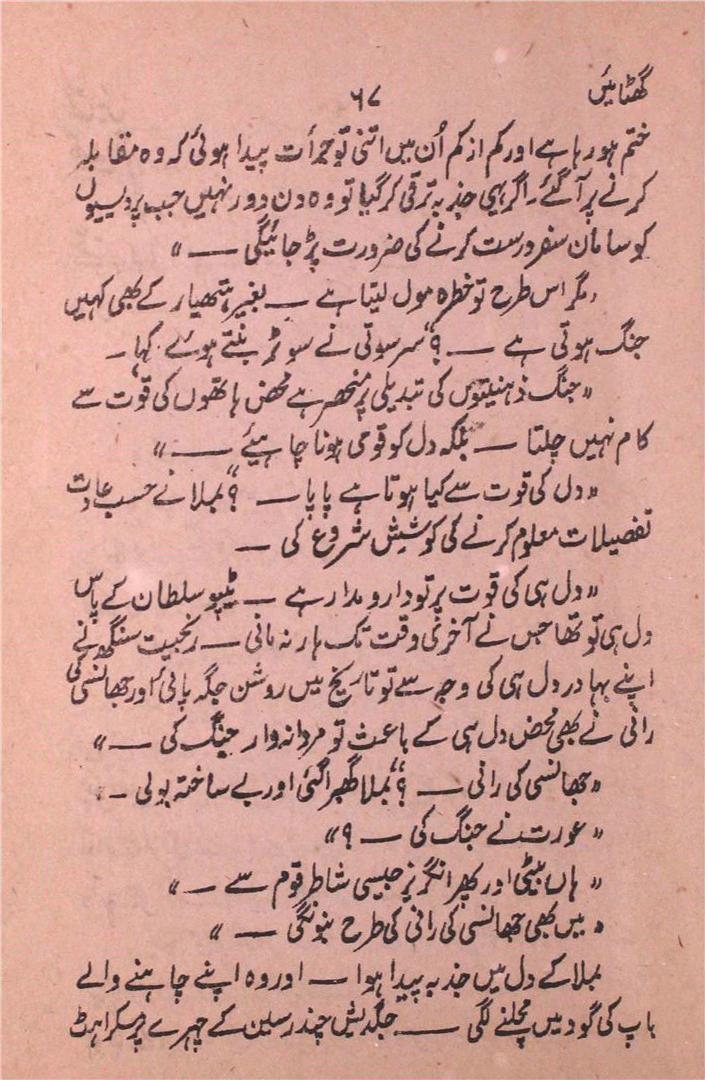 گھٹائیں
۶۷
ختم ہو رہا ہے اور کم از کم اُن میں اتنی تو جرأت پیدا ہوئی کہ وہ مقابلہ
کرنے پر آگئے۔ اگر یہی جذبہ ترقی کر گیا تو وہ دن دور نہیں جب پردیسیوں
کو سامان سفر درست کرنے کی ضرورت پڑ جائیگی — "
"مگر اس طرح تو خطرہ مول لیتا ہے — بغیر ہتھیار کے بھی کہیں
جنگ ہوتی ہے — ؟" سرسوتی نے سوئٹر بنتے ہوئے کہا۔
"جنگ ذہنیتوں کی تبدیلی پر منحصر ہے محض ہاتھوں کی قوت سے
کام نہیں چلتا — بلکہ دل کو قومی ہونا چاہیئے — "
"دل کی قوت سے کیا ہوتا ہے پاپا — ؟" بملا نے حسب عادت
تفصیلات معلوم کرنے کی کوشش شروع کی —
"دل ہی کی قوت پر تو دارومدار ہے — ٹیپو سلطان کے پاس
دل ہی تو تھا جس نے آخری وقت تک ہار نہ مانی — رنجیت سنگھ نے
اپنے بہادر دل ہی کی وجہ سے تو تاریخ میں روشن جگہ پائی اور جھانسی کی
رانی نے بھی محض دل ہی کے باعث تو مردانہ وار جنگ کی — "
"جھانسی کی رانی — ؟" بملا گھبرا گئی اور بے ساختہ بولی —
"عورت نے جنگ کی — ؟"
"ہاں بیٹی اور پھر انگریز جیسی شاطر قوم سے — "
"میں بھی جھانسی کی رانی کی طرح بنونگی — "
بملا کے دل میں جذبہ پیدا ہوا — اور وہ اپنے چاہنے والے
باپ کی گود میں مچلنے لگی — جگدیش چندر سین کے چہرے پر مسکراہٹ